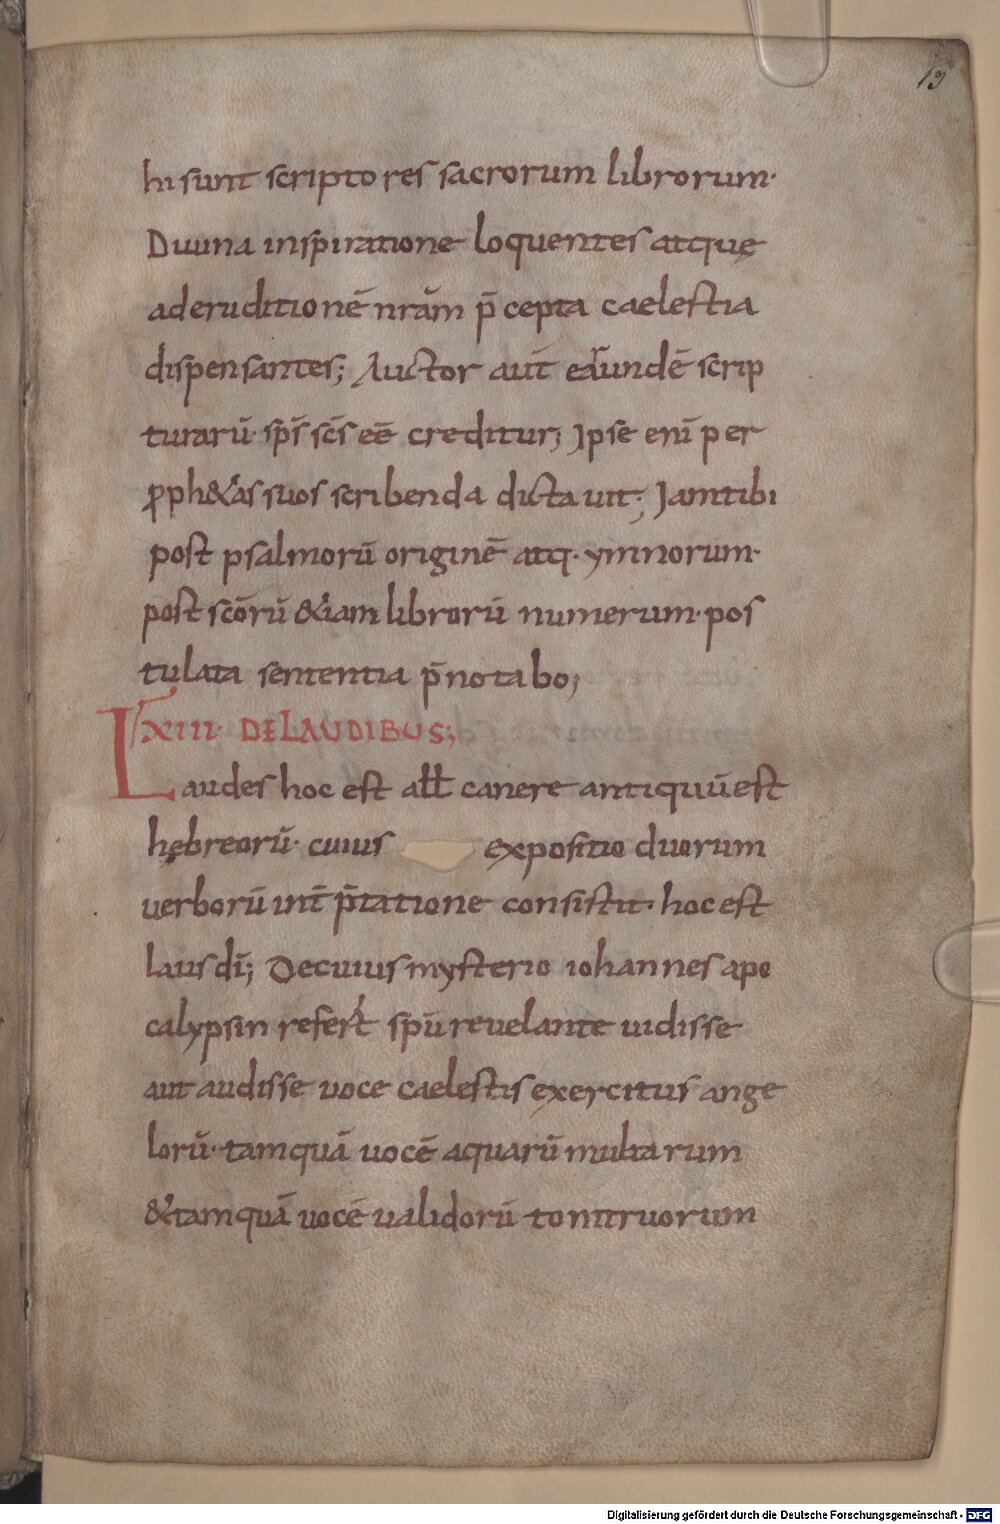 13
hi sunt scriptores sacrorum librorum·
Diuina inspiratione loquentes atque
ad eruditionē nrām p̄cepta caelestia
dispensantes; Auctor aut̄ earundē scrip
turarū· sp̄s sc̄s eē creditur; Ipse eni̅ per
ꝓph&as suos scribenda dictauit; Iam tibi
post psalmorū originē atq· ymnorum·
post scōrū &iam librorū numerum· pos
tulata sententia p̄notabo;
XIII· DE LAUDIBUS;
Laudes hoc est all̄ canere antiquū est
hębreorū· cuius expositio duorum
uerborū int̄p̄tatione consistit· hoc est
laus dī; De cuius mysterio iohannes apo
calypsin refert sp̄u reuelante uidisse
aut audisse uoce caelestis exercitus ange
lorū· tamquā uocē aquarū multarum
&tamquā uocē ualidorū tonitruorum
Digitalisierung gefördert durch die Deutsche Forschungsgemeinschaft - DFG